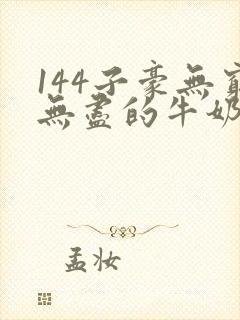 144子豪無窮
無盡的牛奶
孟妆